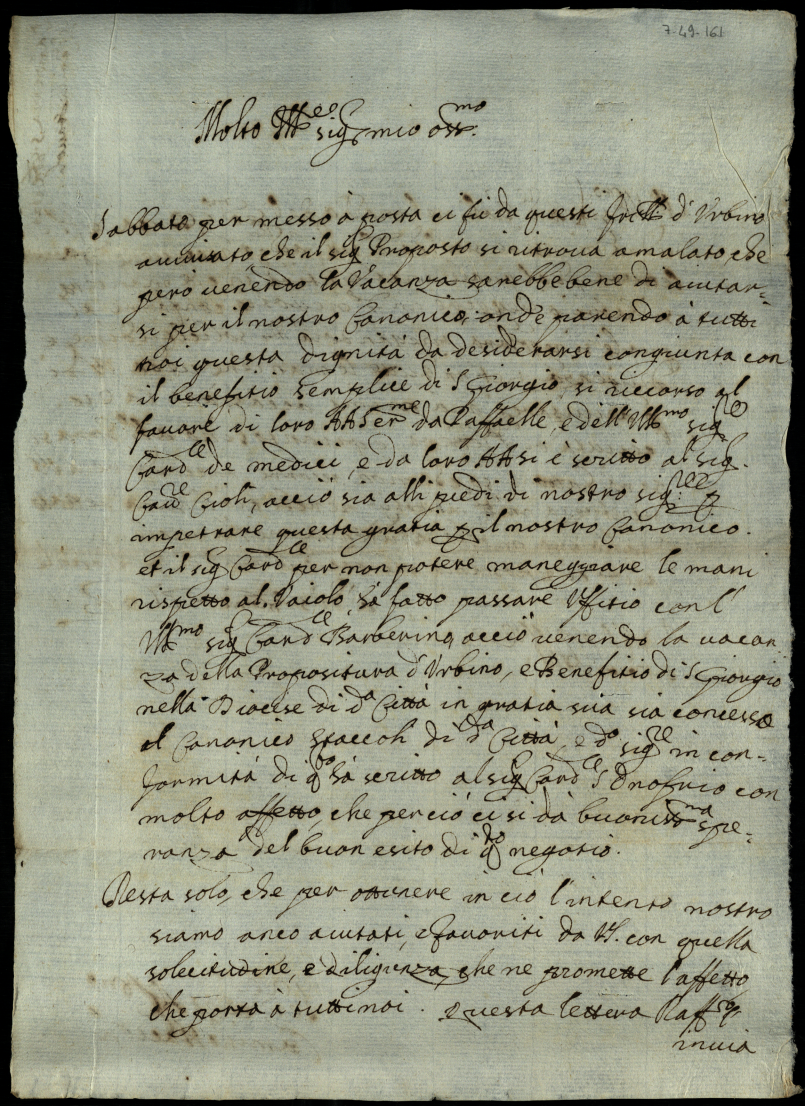 7-49-161
Molto Ill.re sig.r mio oss.mo
Sabbato per messo à posta ci fù da questi frat.lli d'Urbino
avvisato che il sig.r Proposto si ritrova amalato, che
però venendo la Vacanza sarebbe bene di aiutar-
si per il nostro Canonico, onde parendo à tutti
noi questa dignità da desiderarsi congiunta con
il benefitio semplice di S Giorgio, si riccorso al
favore di loro AA Ser.me da Raffaelle, e dell'Ill.mo sig.re
Card.le de medici, e da loro AA si è scritto al sig.
Cav.re Cioli, acciò sia alli piedi di nostro sig.re p
impetrare questa gratia p il nostro Canonico.
et il sig.r Card.le per non potere maneggiare le mani
rispetto al Vaiolo, hà fatto passare Uffitio con l'
Ill.mo sig.r Card.le Barberino, acciò venendo la vacan
za della Propositura d'Urbino, e Benefitio di S Giorgio
nella Diocese di d.a Città in gratia sua sia concesso
al Canonico Staccoli di d.a Città, e d.o sig.re in con-
formità di q.to hà scritto al sig.r Card.le S Onofrio con
molto affetto, che perciò ci si dà buoniss.ma spe-
ranza del buon esito di q.to negotio.
Resta solo, che per ottenere in ciò l'intento nostro
siamo anco aiutati, e favoriti da VS. con quella
solecitudine, e diligenza, che ne promette l'affetto
che porta à tutti noi. Questa lettera Raff.lo
invia